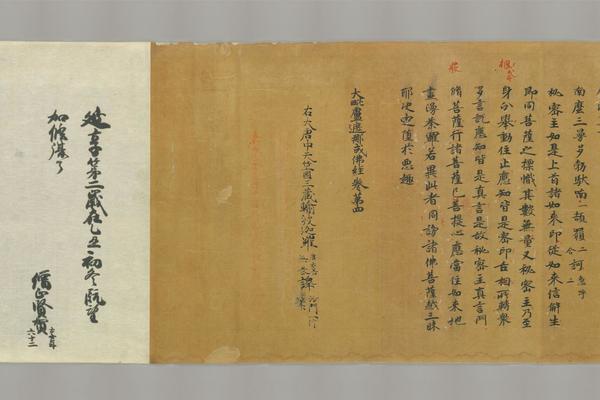 南麼三曼多勃馱喃一頡羅二合訶急呼二
秘密主如是上首諸如來印從如來信解生
即同菩薩之標幟其數無量又秘密主乃至
身分舉動住止應知皆是密印舌相所轉衆
多言說應知皆是真言是故秘密主真言門
脩菩薩行諸菩薩已菩提心應當住如來地
發
畫漫荼羅若異此者同謗諸佛菩薩越三昧
耶決定墮於惡趣
大毗盧遮那成佛經卷第四
右大唐中天竺國三藏輸波迦羅 譯
延享第二歳在乙丑初冬既望
加修補了
僧正賢賀
六十二